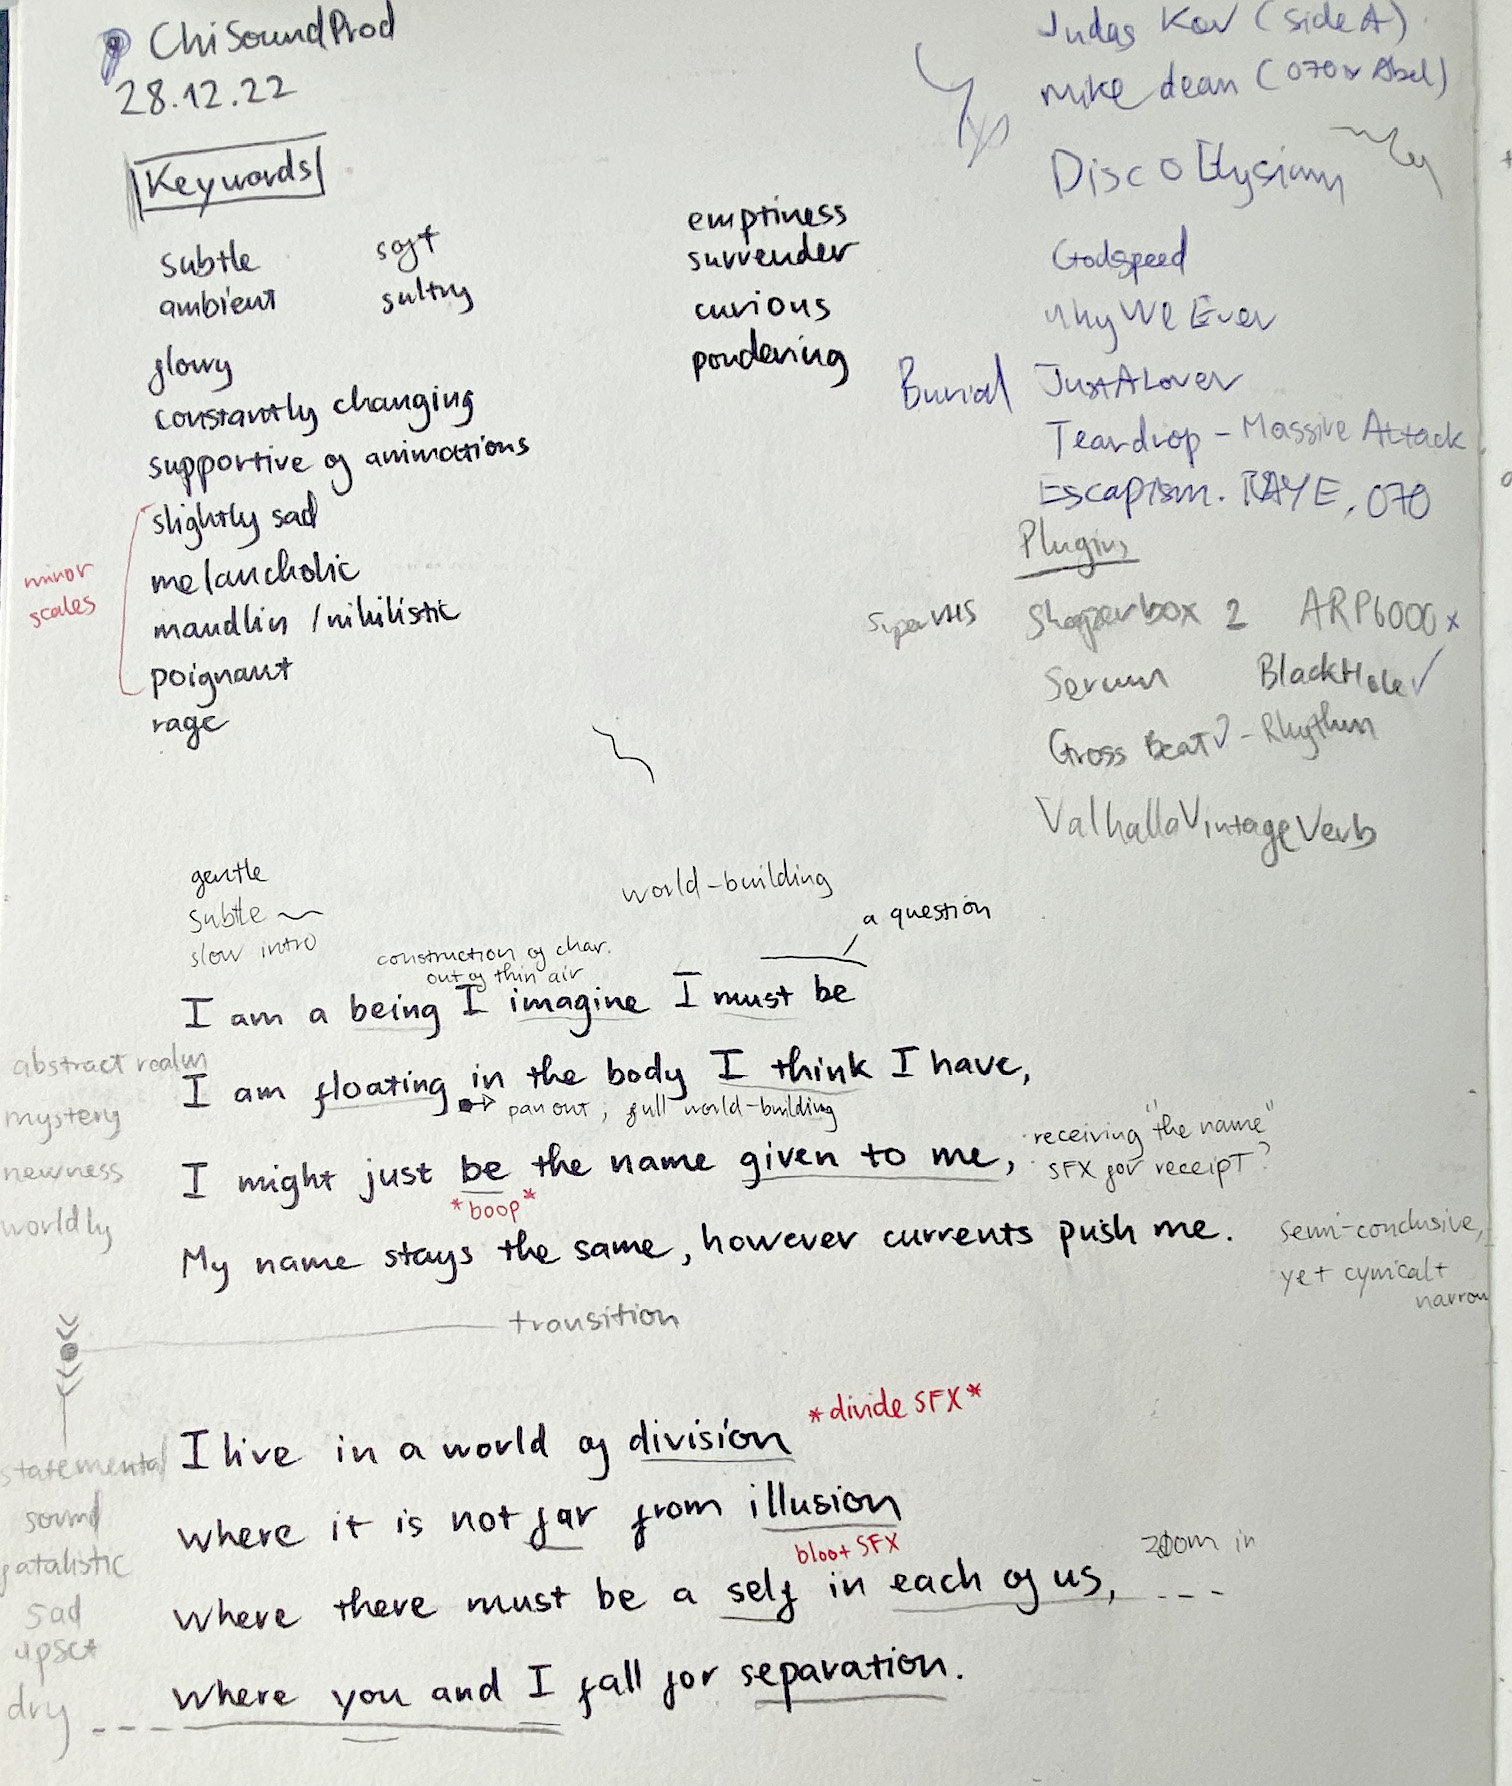 ChiSoundProd
28.12.22
Keywords
subtle soft
ambient sultry
glowy
constantly changing
supportive of animations
slightly sad
melancholic
maudlin / nihilistic
poignant
rage
minor
scales
emptiness
surrender
curious
pondering
Judas Kov (side A)
mike dean (070 x Abel)
Disco Elysium
Godspeed
Why We Ever
Burial JustALover
Teardrop - Massive Attack
Escapism. RAYE, 070
Plugins
SuperVHS Shaperbox 2 ARP6000 x
Serum BlackHole ✓
Gross Beat ✓ - Rhythm
ValhallaVintageVerb
gentle
subtle
slow intro
world-building
a question
construction of char.
out of thin air
I am a being I imagine I must be
abstract realm
I am floating in the body I think I have,
pan out, full world-building
mystery
newness
worldly
I might just be the name given to me,
*boop*
receiving "the name"
SFX for receipt?
My name stays the same, however currents push me.
semi-conclusive,
yet cynical +
narrow
transition
I live in a world of division *divide SFX*
statemental
sound
fatalistic
sad
upset
dry
where it is not far from illusion
bloot SFX
where there must be a self in each of us, ---
zoom in
--- where you and I fall for separation.